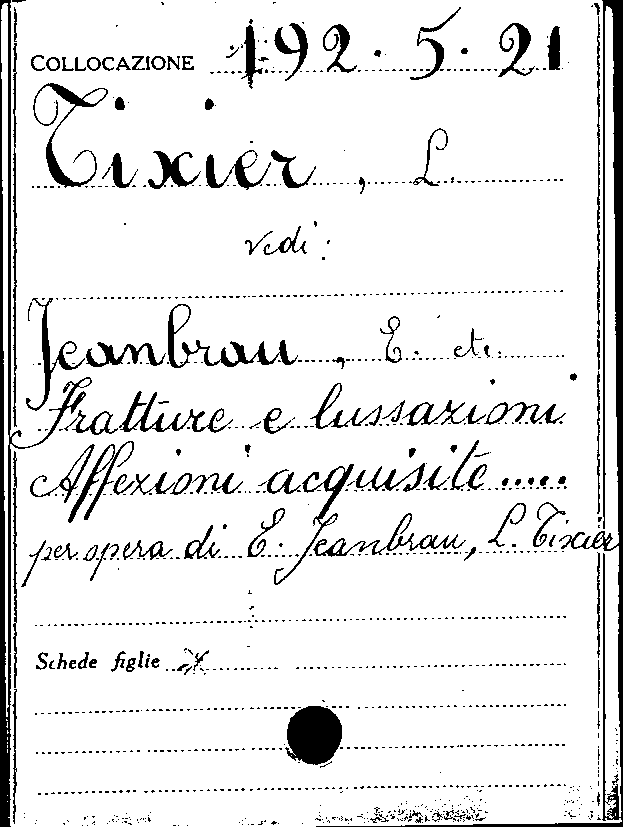 COLLOCAZIONE 192.5.21
Tixier, L.
vedi:
Jeanbrau, E. etc.
Fratture e lussazioni.
Affezioni acquisite.....
per opera di E. Jeanbrau, L. Tixier
Schede figlie